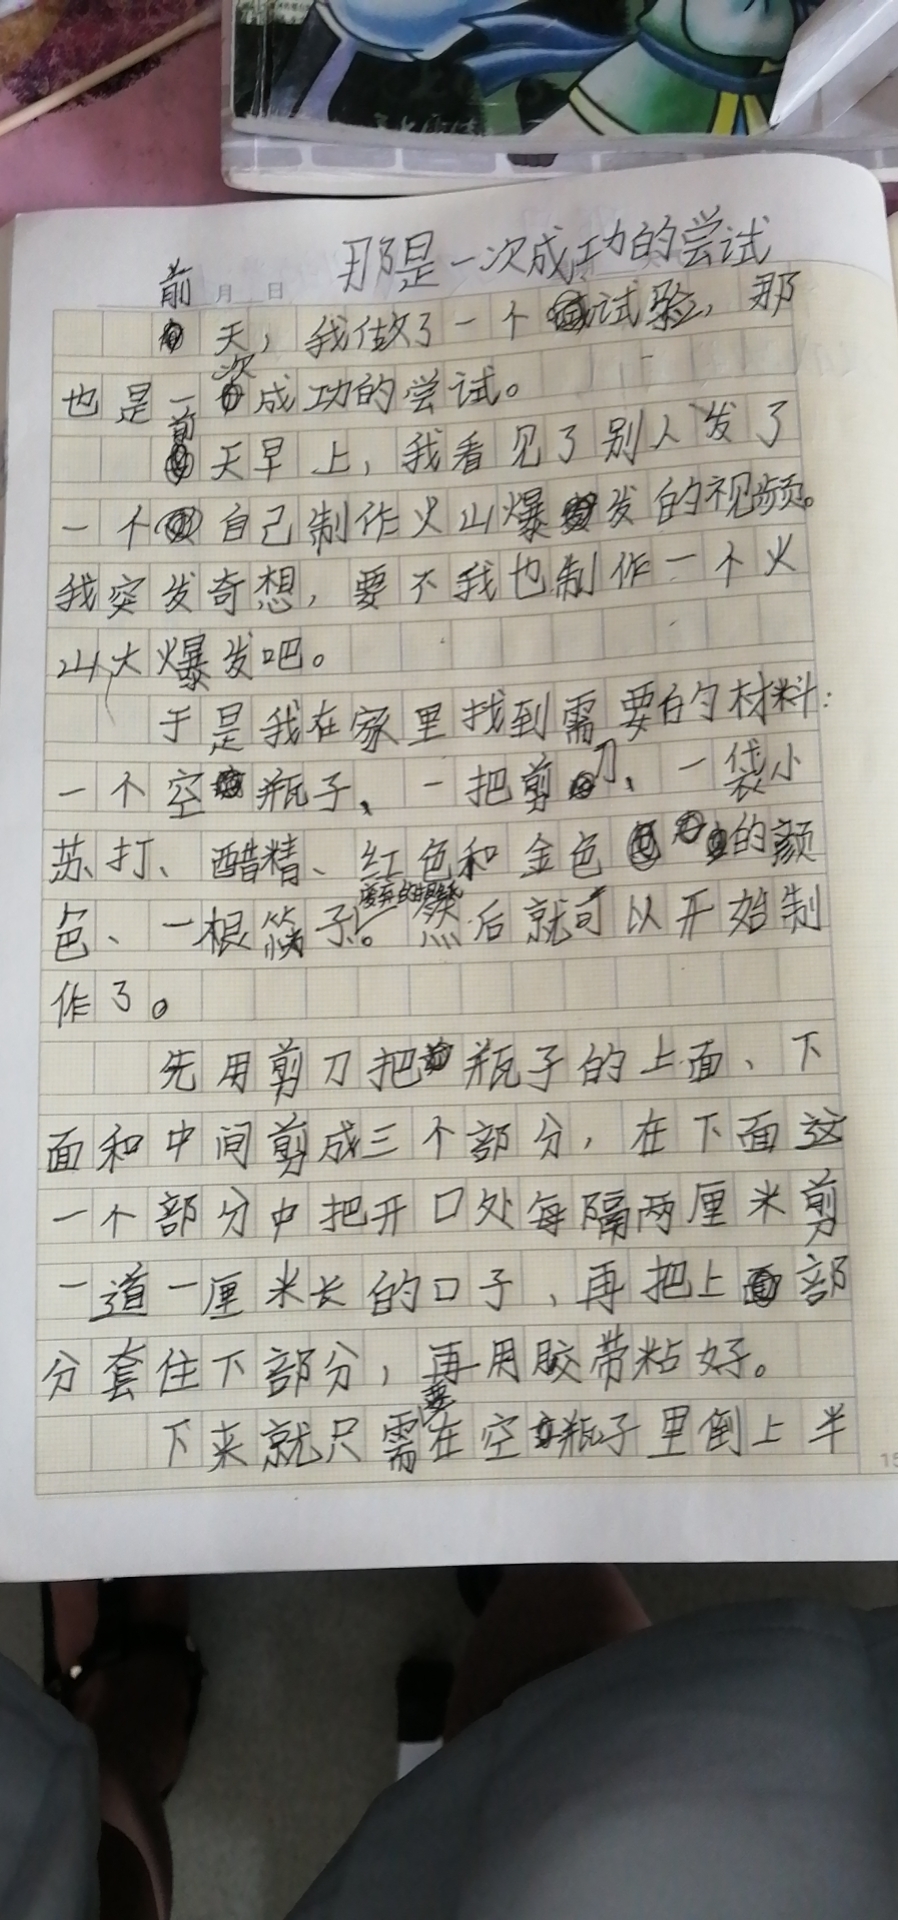 那是一次成功的尝试
月 日
前天，我做了一个试验，那
也是一次成功的尝试。
前天早上，我看见了别人发了
一个自己制作火山爆发的视频。
我突发奇想，要不我也制作一个火
山大爆发吧。
于是我在家里找到需要的材料：
一个空瓶子、一把剪刀、一袋小
苏打、醋精、红色和金色的颜
色、一根筷子。然后就可以开始制
作了。
先用剪刀把瓶子的上面、下
面和中间剪成三个部分，在下面这
一个部分中把开口处每隔两厘米剪
一道一厘米长的口子、再把上部
分套住下部分，再用胶带粘好。
下来就只需要在空瓶子里倒上半